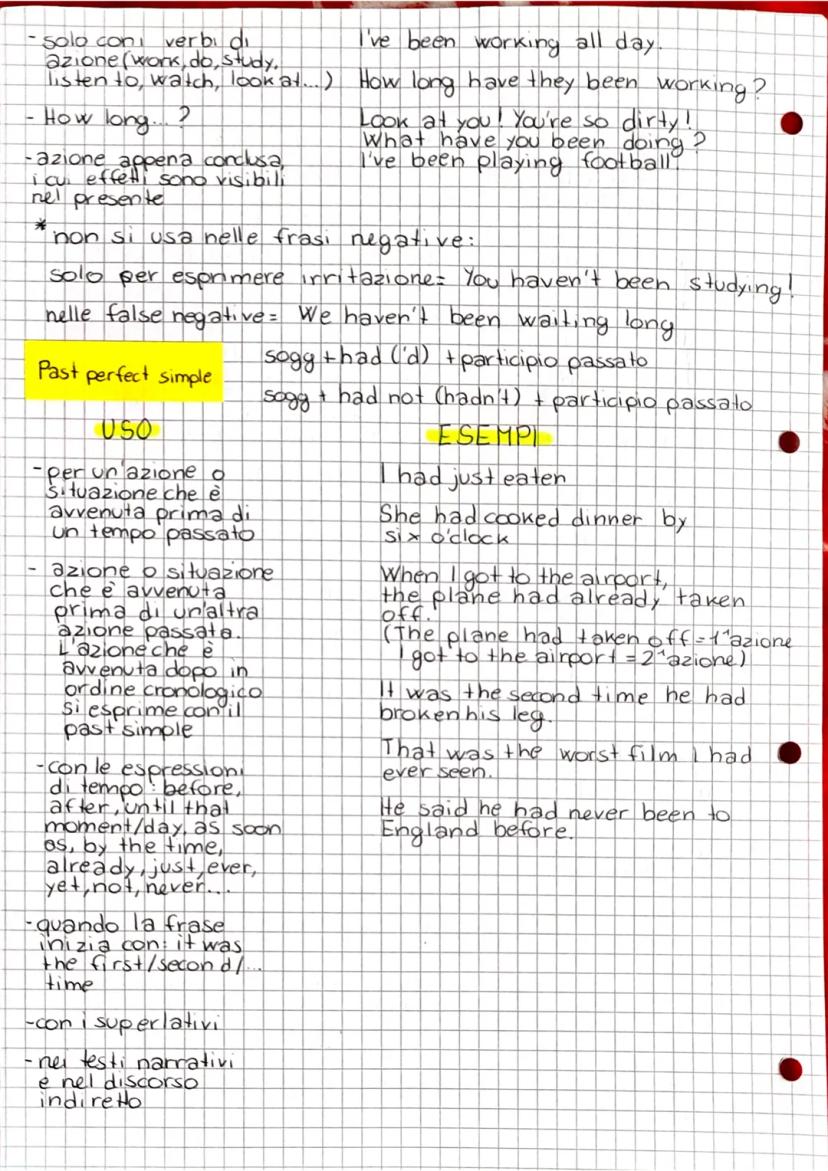 - solo con i verbi di
azione (work, do, study,
listen to, watch, look at...)
- How long...?
- azione appena conclusa,
i cui effetti sono visibili
nel presente
I've been working all day.
How long have they been working?
Look at you! You're so dirty!
What have you been doing?
I've been playing football!
* non si usa nelle frasi negative:
solo per esprimere irritazione = You haven't been studying!
nelle false negative = We haven't been waiting long
Past perfect simple
sogg + had ('d) + participio passato
sogg + had not (hadn't) + participio passato
USO
- per un'azione o
situazione che è
avvenuta prima di
un tempo passato
- azione o situazione
che è avvenuta
prima di un'altra
azione passata.
L'azione che è
avvenuta dopo in
ordine cronologico
si esprime con il
past simple
- con le espressioni
di tempo: before,
after, until that
moment/day, as soon
as, by the time,
already, just, ever,
yet, not, never...
- quando la frase
inizia con: it was
the first/second/...
time
- con i superlativi
- nei testi narrativi
e nel discorso
indiretto
ESEMPI
I had just eaten
She had cooked dinner by
six o'clock
When I got to the airport,
the plane had already taken
off.
(The plane had taken off = 1ª azione
I got to the airport = 2ª azione)
It was the second time he had
broken his leg.
That was the worst film I had
ever seen.
He said he had never been to
England before.